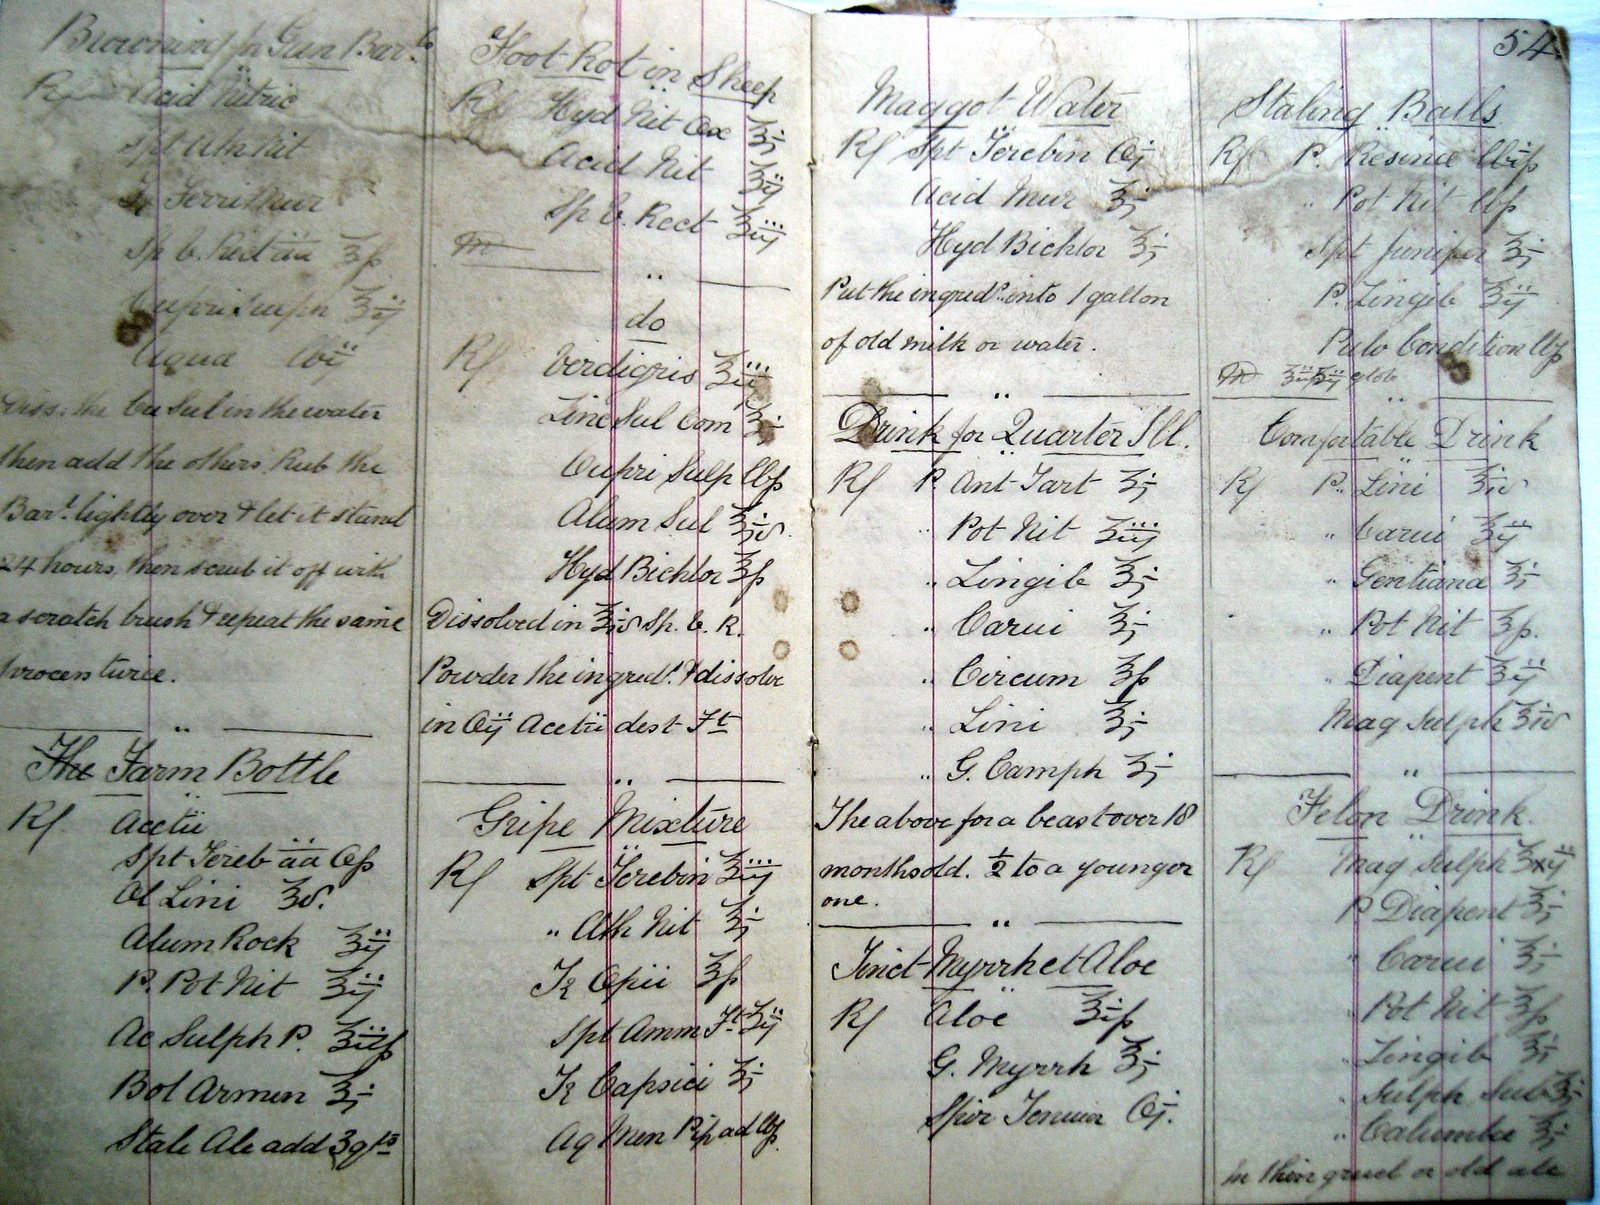 Browning for Gun Bar.ls
Rx Acid Nitric
Spt Æth Nit
Tr Ferri Mur
Sp V. Rect āā ʒß
Cupri Sulph ʒij
Aqua lbij
Diss. the Cu Sul in the water
then add the others. Rub the
Bar.l lightly over & let it stand
24 hours, then scrub it off with
a scratch brush & repeat the same
process twice.
The Farm Bottle
Rx Acetii
Spt Tereb āā Oß
Ol Lini ℥v.
Alum Rock ℥ij
P. Pot Nit ℥ij
Ac Sulph P. ℥ijß
Bol Armen ℥j
Stale Ale add 3 qts
Foot Rot in Sheep
Rx Hyd Nit Ox ʒj
Acid Nit ʒij
Sp V. Rect ʒiij
M
do
Rx Verdigris ℥iij
Zinc Sul Com ℥j
Cupri Sulp lbß
Alum Sul ℥iv.
Hyd Bichlor ℥ß
Dissolved in ℥iv Sp. V. R.
Powder the ingred.t & dissolve
in Oij Acetii dest Ft
Gripe Mixture
Rx Spt Terebin ℥iij
" Æth Nit ℥j
Tr Opii ℥ß
Spt Amm Ft ℥ij
Tr Capsici ℥j
Aq Men Pip ad lbß.
54.
Maggot Water
Rx Spt Terebin Oj
Acid Mur ℥j
Hyd Bichlor ℥j
Put the ingred.ts into 1 gallon
of old milk or water.
Drink for Quarter Ill.
Rx P. Ant Tart ʒj
" Pot Nit ʒiij
" Zingib ℥j
" Carui ℥j
" Circum ℥ß
" Lini ℥j
" G. Camph ʒj
The above for a beast over 18
months old. ½ to a younger
one.
Tinct Myrrh et Aloe
Rx Aloe ℥iß
G. Myrrh ℥j
Spir Tenuior Oj.
Staling Balls
Rx P. Resinæ lbiß
" Pot Nit lbß
Spt Juniper ℥j
P. Zingib ℥ij
Pulv Condition lbß
M glob
Comfortable Drink
Rx P. Lini ℥iv
" Carui ℥ij
" Gentiana ℥j
" Pot Nit ℥ß.
" Diapent ℥ij
Mag Sulph ℥iv
Felon Drink.
Rx Mag Sulph ℥xij
P Diapent ℥j
" Carui ℥j
" Pot Nit ℥ß
" Zingib ℥j
" Sulph Sub ℥j
" Calumba ℥j
In thin gruel or old ale